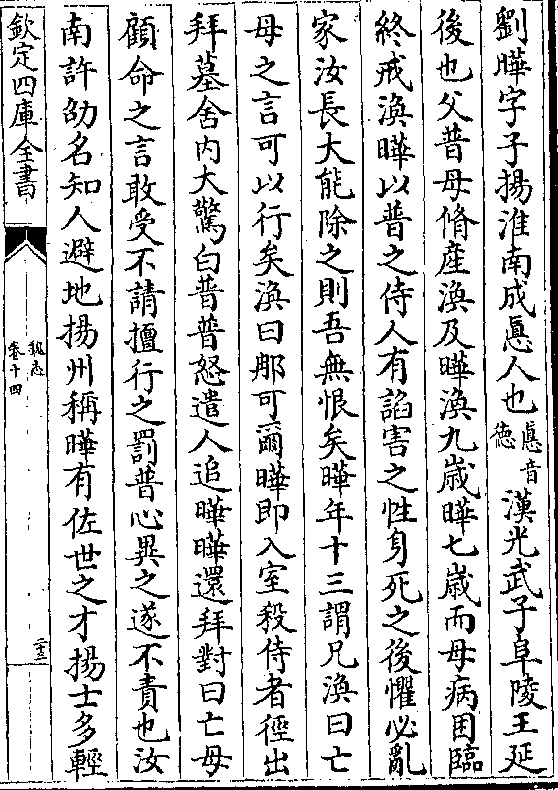 劉曄字子揚淮南成悳人也悳音德漢光武子阜陵王延
後也父普母脩產渙及曄渙九歳曄七歳而母病困臨
終戒渙曄以普之侍人有諂害之性身死之後懼必亂
家汝長大能除之則吾無恨矣曄年十三謂兄渙曰亡
母之言可以行矣渙曰那可爾曄即入室殺侍者徑出
拜墓舍内大驚白普普怒遣人追曄曄還拜對曰亡母
顧命之言敢受不請擅行之罰普心異之遂不責也汝
南許劭名知人避地揚州稱曄有佐世之才揚士多輕
欽定四庫全書
魏志
卷十四
二十三